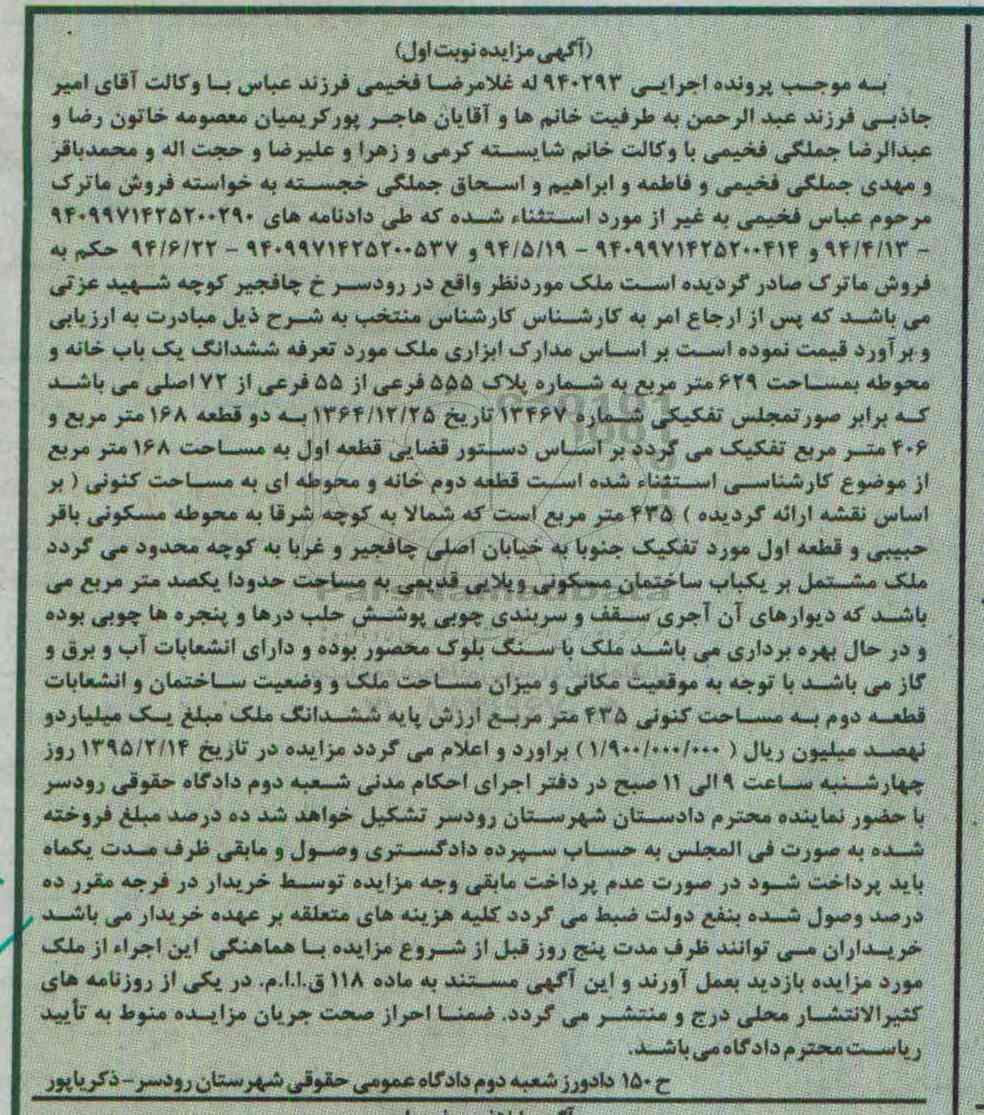 (آگهی مزایده نوبت اول)
به موجب پرونده اجرایی ۹۴۰۲۹۳ له غلامرضا فخیمی فرزند عباس با وکالت آقای امیر
جاذبی فرزند عبد الرحمن به طرفیت خانم ها و آقایان هاجر پورکریمیان معصومه خاتون رضا و
عبدالرضا جملگی فخیمی با وکالت خانم شایسته کرمی و زهرا و علیرضا و حجت اله و محمدباقر
و مهدی جملگی فخیمی و فاطمه و ابراهیم و اسحاق جملگی خجسته به خواسته فروش ماترک
مرحوم عباس فخیمی به غیر از مورد استثناء شده که طی دادنامه های ۹۴۰۹۹۷۱۴۲۵۲۰۰۲۹۰
- ۹۴/۴/۱۳ و ۹۴۰۹۹۷۱۴۲۵۲۰۰۴۱۴ - ۹۴/۵/۱۹ و ۹۴۰۹۹۷۱۴۲۵۲۰۰۵۳۷ - ۹۴/۶/۲۲ حکم به
فروش ماترک صادر گردیده است ملک موردنظر واقع در رودسر خ چافجیر کوچه شهید عزتی
می باشد که پس از ارجاع امر به کارشناس کارشناس منتخب به شرح ذیل مبادرت به ارزیابی
و برآورد قیمت نموده است بر اساس مدارک ابزاری ملک مورد تعرفه ششدانگ یک باب خانه و
محوطه بمساحت ۶۲۹ متر مربع به شماره پلاک ۵۵۵ فرعی از ۵۵ فرعی از ۷۲ اصلی می باشد
که برابر صورتمجلس تفکیکی شماره ۱۳۴۶۷ تاریخ ۱۳۶۴/۱۲/۲۵ به دو قطعه ۱۶۸ متر مربع و
۴۰۶ متر مربع تفکیک می گردد بر اساس دستور قضایی قطعه اول به مساحت ۱۶۸ متر مربع
از موضوع کارشناسی استثناء شده است قطعه دوم خانه و محوطه ای به مساحت کنونی ( بر
اساس نقشه ارائه گردیده ) ۴۳۵ متر مربع است که شمالا به کوچه شرقا به محوطه مسکونی باقر
حبیبی و قطعه اول مورد تفکیک جنوبا به خیابان اصلی چافجیر و غربا به کوچه محدود می گردد
ملک مشتمل بر یکباب ساختمان مسکونی ویلایی قدیمی به مساحت حدودا یکصد متر مربع می
باشد که دیوارهای آن آجری سقف و سربندی چوبی پوشش حلب درها و پنجره ها چوبی بوده
و در حال بهره برداری می باشد ملک با سنگ بلوک محصور بوده و دارای انشعابات آب و برق و
گاز می باشد با توجه به موقعیت مکانی و میزان مساحت ملک و وضعیت ساختمان و انشعابات
قطعه دوم به مساحت کنونی ۴۳۵ متر مربع ارزش پایه ششدانگ ملک مبلغ یک میلیاردو
نهصد میلیون ریال ( ۱/۹۰۰/۰۰۰/۰۰۰ ) براورد و اعلام می گردد مزایده در تاریخ ۱۳۹۵/۲/۱۴ روز
چهارشنبه ساعت ۹ الی ۱۱ صبح در دفتر اجرای احکام مدنی شعبه دوم دادگاه حقوقی رودسر
با حضور نماینده محترم دادستان شهرستان رودسر تشکیل خواهد شد ده درصد مبلغ فروخته
شده به صورت فی المجلس به حساب سپرده دادگستری وصول و مابقی ظرف مدت یکماه
باید پرداخت شود در صورت عدم پرداخت مابقی وجه مزایده توسط خریدار در فرجه مقرر ده
درصد وصول شده بنفع دولت ضبط می گردد کلیه هزینه های متعلقه بر عهده خریدار می باشد
خریداران می توانند ظرف مدت پنج روز قبل از شروع مزایده با هماهنگی این اجراء از ملک
مورد مزایده بازدید بعمل آورند و این آگهی مستند به ماده ۱۱۸ ق.ا.ا.م. در یکی از روزنامه های
کثیرالانتشار محلی درج و منتشر می گردد. ضمنا احراز صحت جریان مزایده منوط به تأیید
ریاست محترم دادگاه می باشد.
ح ۱۵۰ دادورز شعبه دوم دادگاه عمومی حقوقی شهرستان رودسر - ذکریاپور